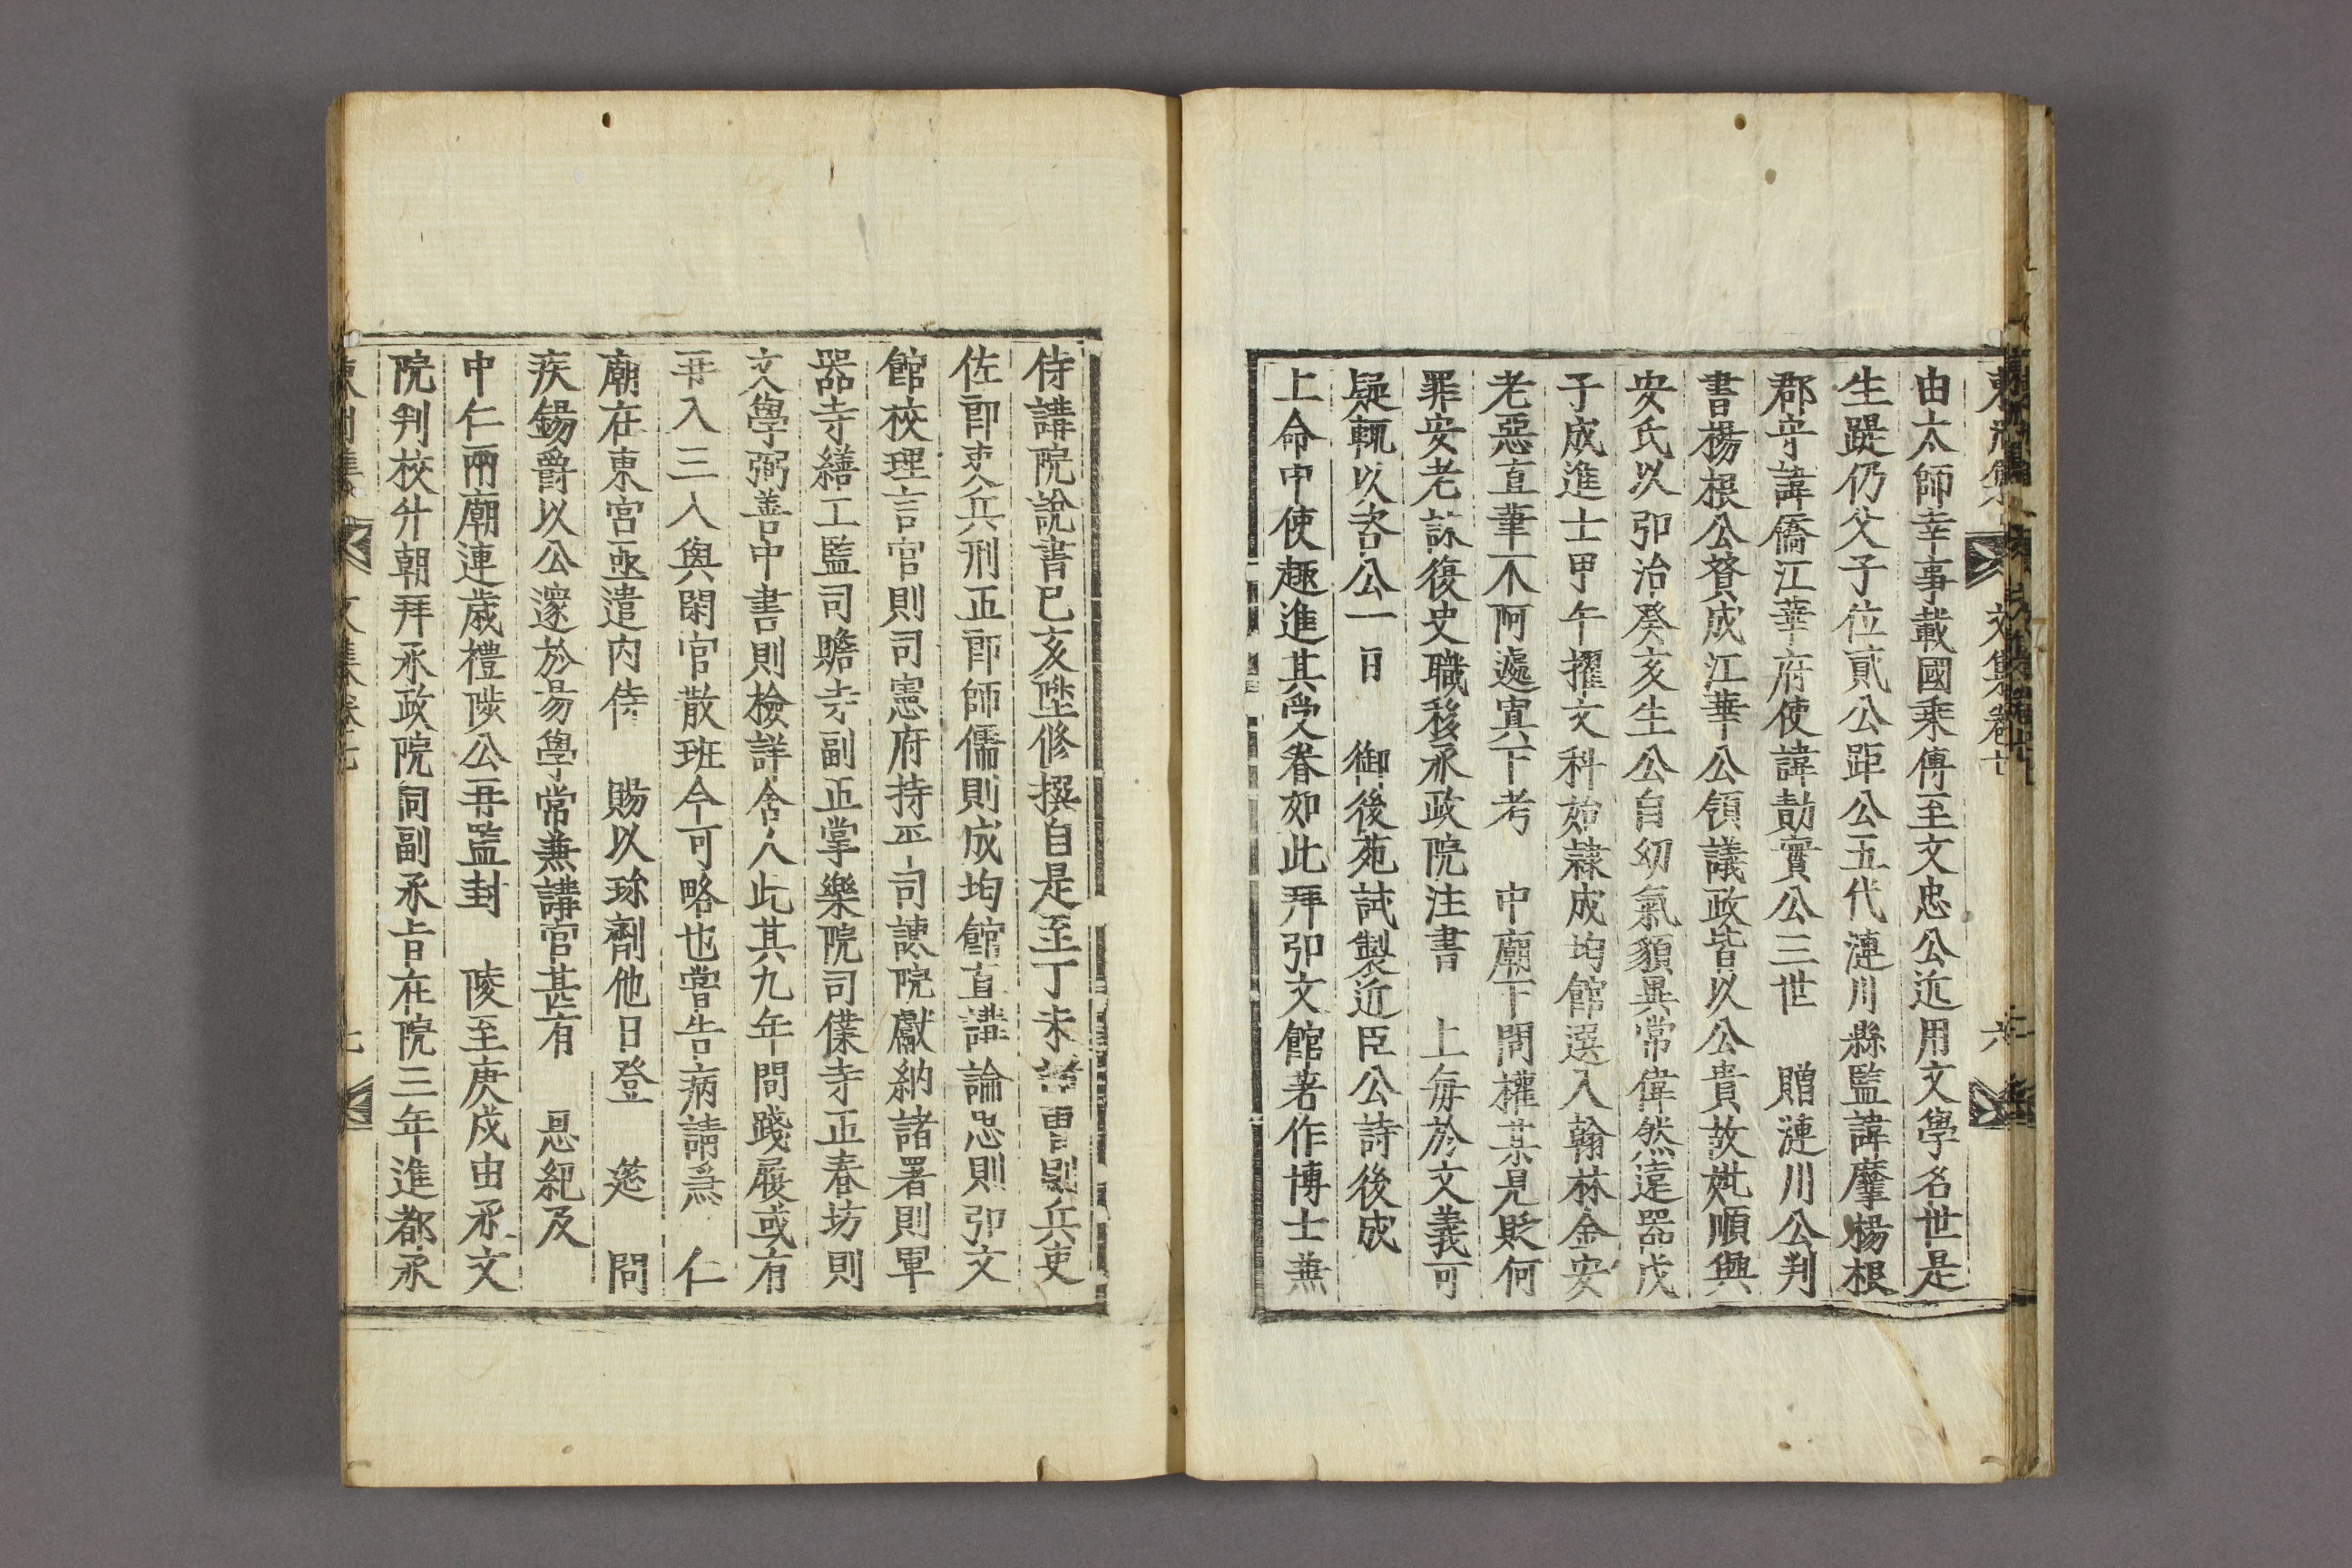 由太師幸事載國乘傳至文忠公近用文學名世是
生踶仍父子位貳公距公五代漣川縣監諱摩楊根
郡守諱僑江華府使諱勣實公三世 贈漣川公判
書楊根公贊成江華公領議政皆以公貴故妣順興
安氏以弘治癸亥生公自幼氣貌異常偉然遠器戊
子成進士甲午擢文科始隸成均館選入翰林金安
老惡直筆不阿遞寘下考 中廟下問權某見貶何
罪安老詠復史職移承政院注書 上每於文義可
疑輒以咨公一日 御後苑試製近臣公詩後成
上命中使趣進其受眷如此拜弘文館著作博士兼
侍講院說書己亥陞修撰自是至丁未諸曹則兵吏
佐郎吏兵刑正郎師儒則成均館直講論思則弘文
館校理言官則司憲府持平司諫院獻納諸署則軍
器寺繕工監司贍寺副正掌樂院司僕寺正春坊則
文學弼善中書則檢詳舍人此其九年間踐履或有
再入三入與閑官散班今可略也嘗告病請急 仁
廟在東宮亟遣內侍 賜以珍劑他日登 筵 問
疾錫爵以公邃於易學常兼講官甚有 恩紀及
中仁兩廟連歲禮陟公再監封 陵至庚戌由承文
院判校升朝拜承政院同副承旨在院三年進都承
文集卷七